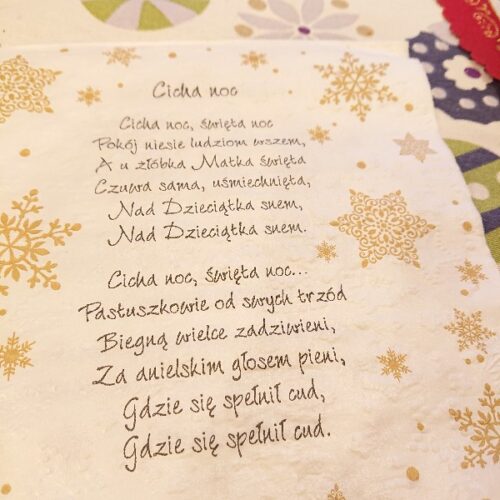 Cicha noc
Cicha noc, święta noc
Pokój niesie ludziom wszem,
A u żłóbka Matka święta
Czuwa sama, uśmiechnięta,
Nad Dzieciątka snem,
Nad Dzieciątka snem.
Cicha noc, święta noc...
Pastuszkowie od swych trzód
Biegną wielce zadziwieni,
Za anielskim głosem pieni,
Gdzie się spełnił cud,
Gdzie się spełnił cud.